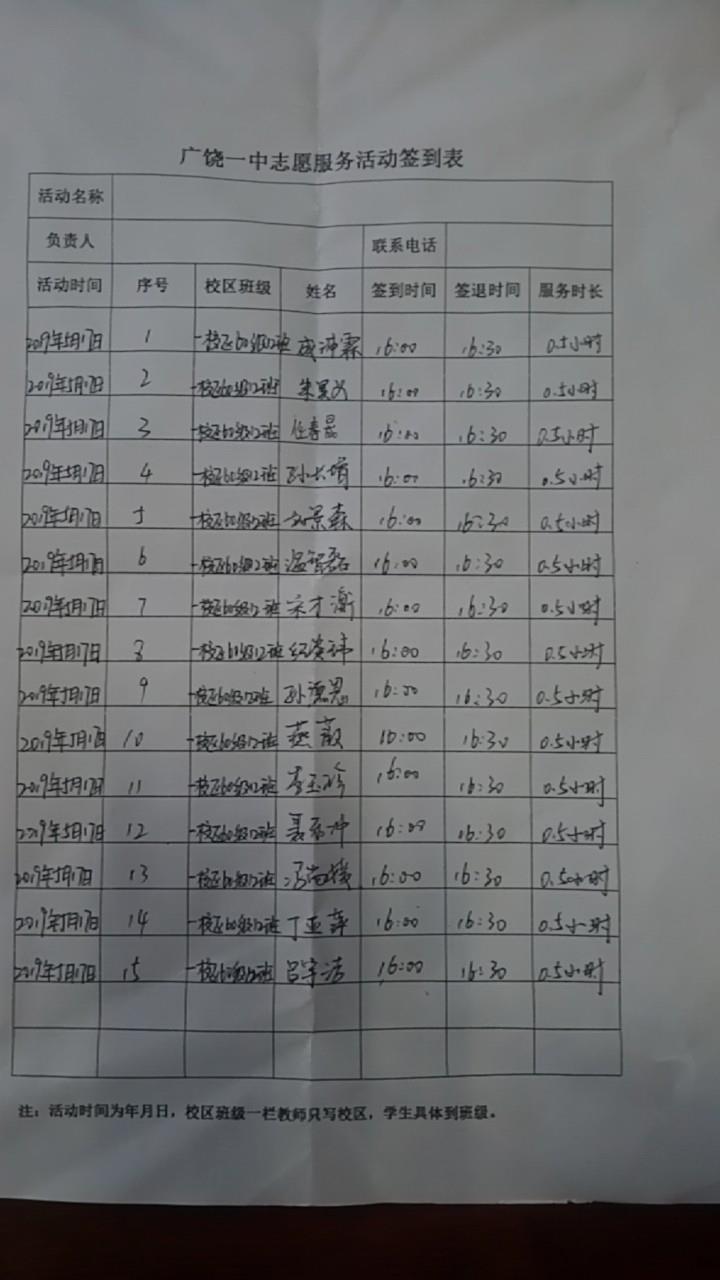 广饶一中志愿服务活动签到表
活动名称
负责人 联系电话
活动时间 序号 校区班级 姓名 签到时间 签退时间 服务时长
2019年5月17日 1 一校区60级12班 16:00 16:30 0.5小时
2019年5月17日 2 一校区60级12班 16:00 16:30 0.5小时
2019年5月17日 3 一校区60级12班 16:00 16:30 0.5小时
2019年5月17日 4 一校区60级12班 16:00 16:30 0.5小时
2019年5月17日 5 一校区60级12班 16:00 16:30 0.5小时
2019年5月17日 6 一校区60级12班 温智磊 16:00 16:30 0.5小时
2019年5月17日 7 一校区60级12班 16:00 16:30 0.5小时
2019年5月17日 8 一校区60级12班 16:00 16:30 0.5小时
2019年5月17日 9 一校区60级12班 孙德恩 16:00 16:30 0.5小时
2019年5月17日 10 一校区60级12班 燕薇 16:00 16:30 0.5小时
2019年5月17日 11 一校区60级12班 李玉珍 16:00 16:30 0.5小时
2019年5月17日 12 一校区60级12班 16:00 16:30 0.5小时
2019年5月17日 13 一校区60级12班 16:00 16:30 0.5小时
2019年5月17日 14 一校区60级12班 丁亚萍 16:00 16:30 0.5小时
2019年5月17日 15 一校区60级12班 吕宇洁 16:00 16:30 0.5小时
注：活动时间为年月日，校区班级一栏教师只写校区，学生具体到班级。